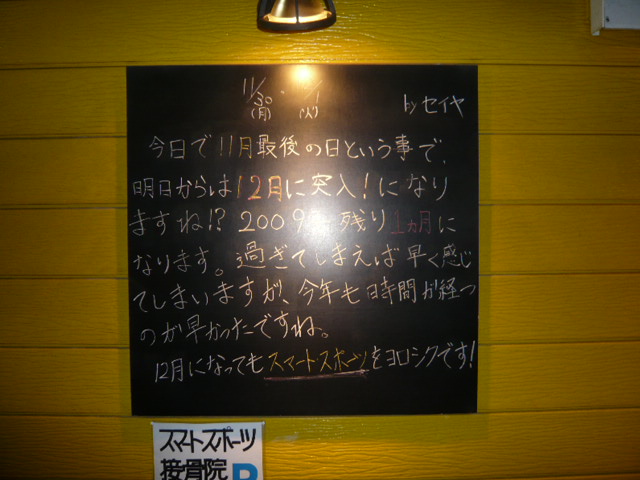 11/30 ・ /1 byセイヤ
(月) (火)
今日で11月最後の日という事で、
明日からは12月に突入!になり
ますね!?2009 残り1ヵ月に
なります。過ぎてしまえば早く感じ
てしまいますが、今年も時間が経つ
のが早かったですね。
12月になってもスマートスポーツをヨロシクです!
スマートスポーツ
接骨院
P